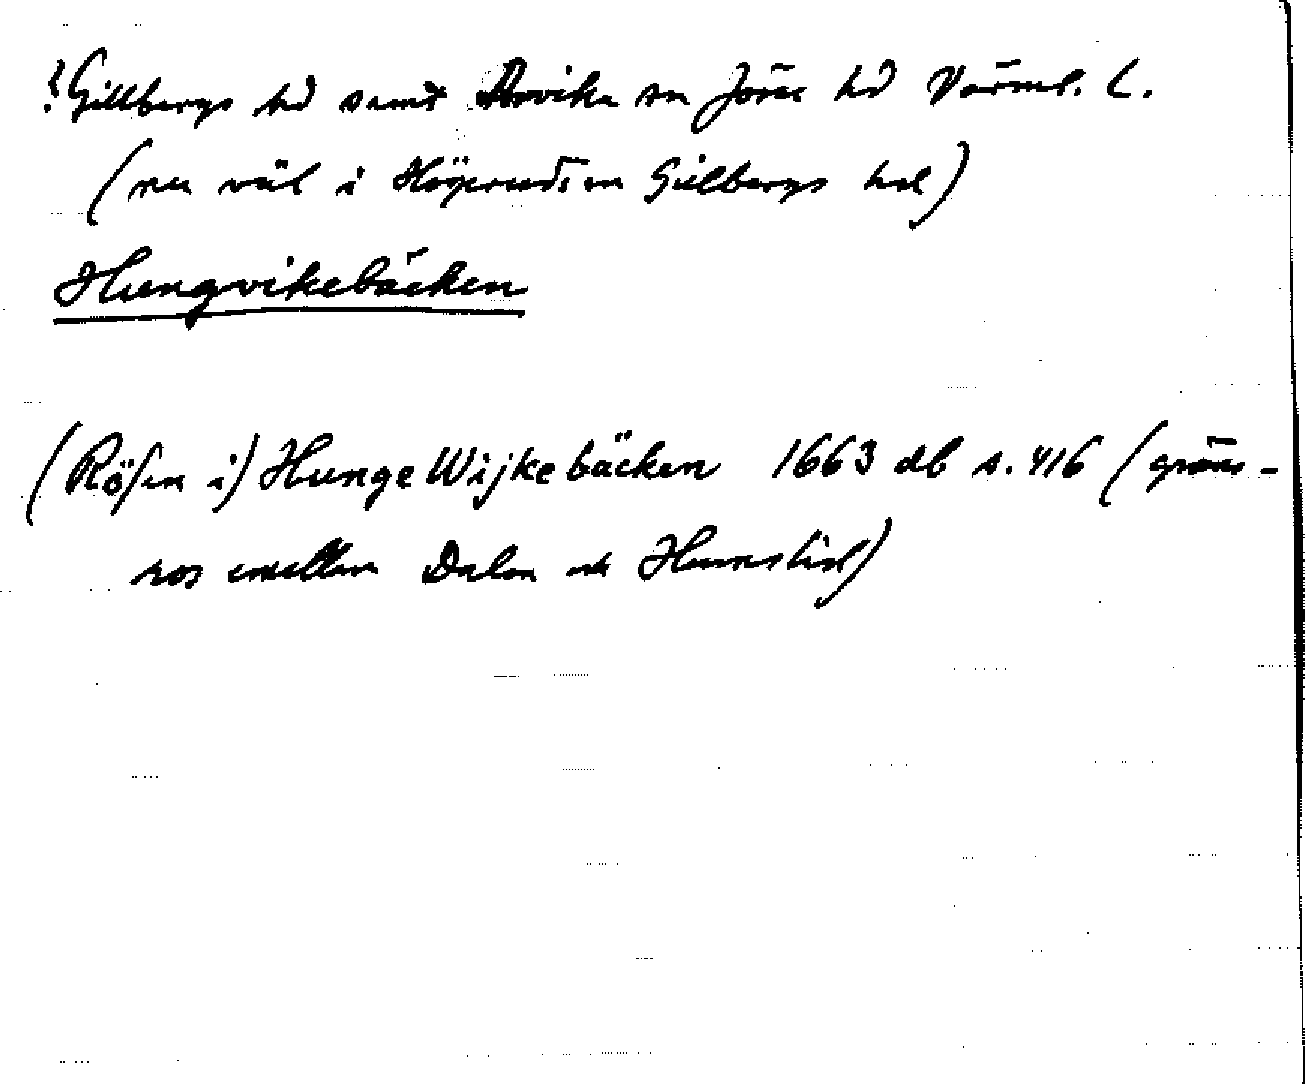 ? Gillbergs hd samt Arvika sn Jösse hd Värml. L.
(nu väl i Högeruds sn Gillbergs hd)
Hungvikebäcken
(Röſen i) Hunge Wijke bäcken 1663 db s. 416 (gräns-
rös emellan Dalen och)